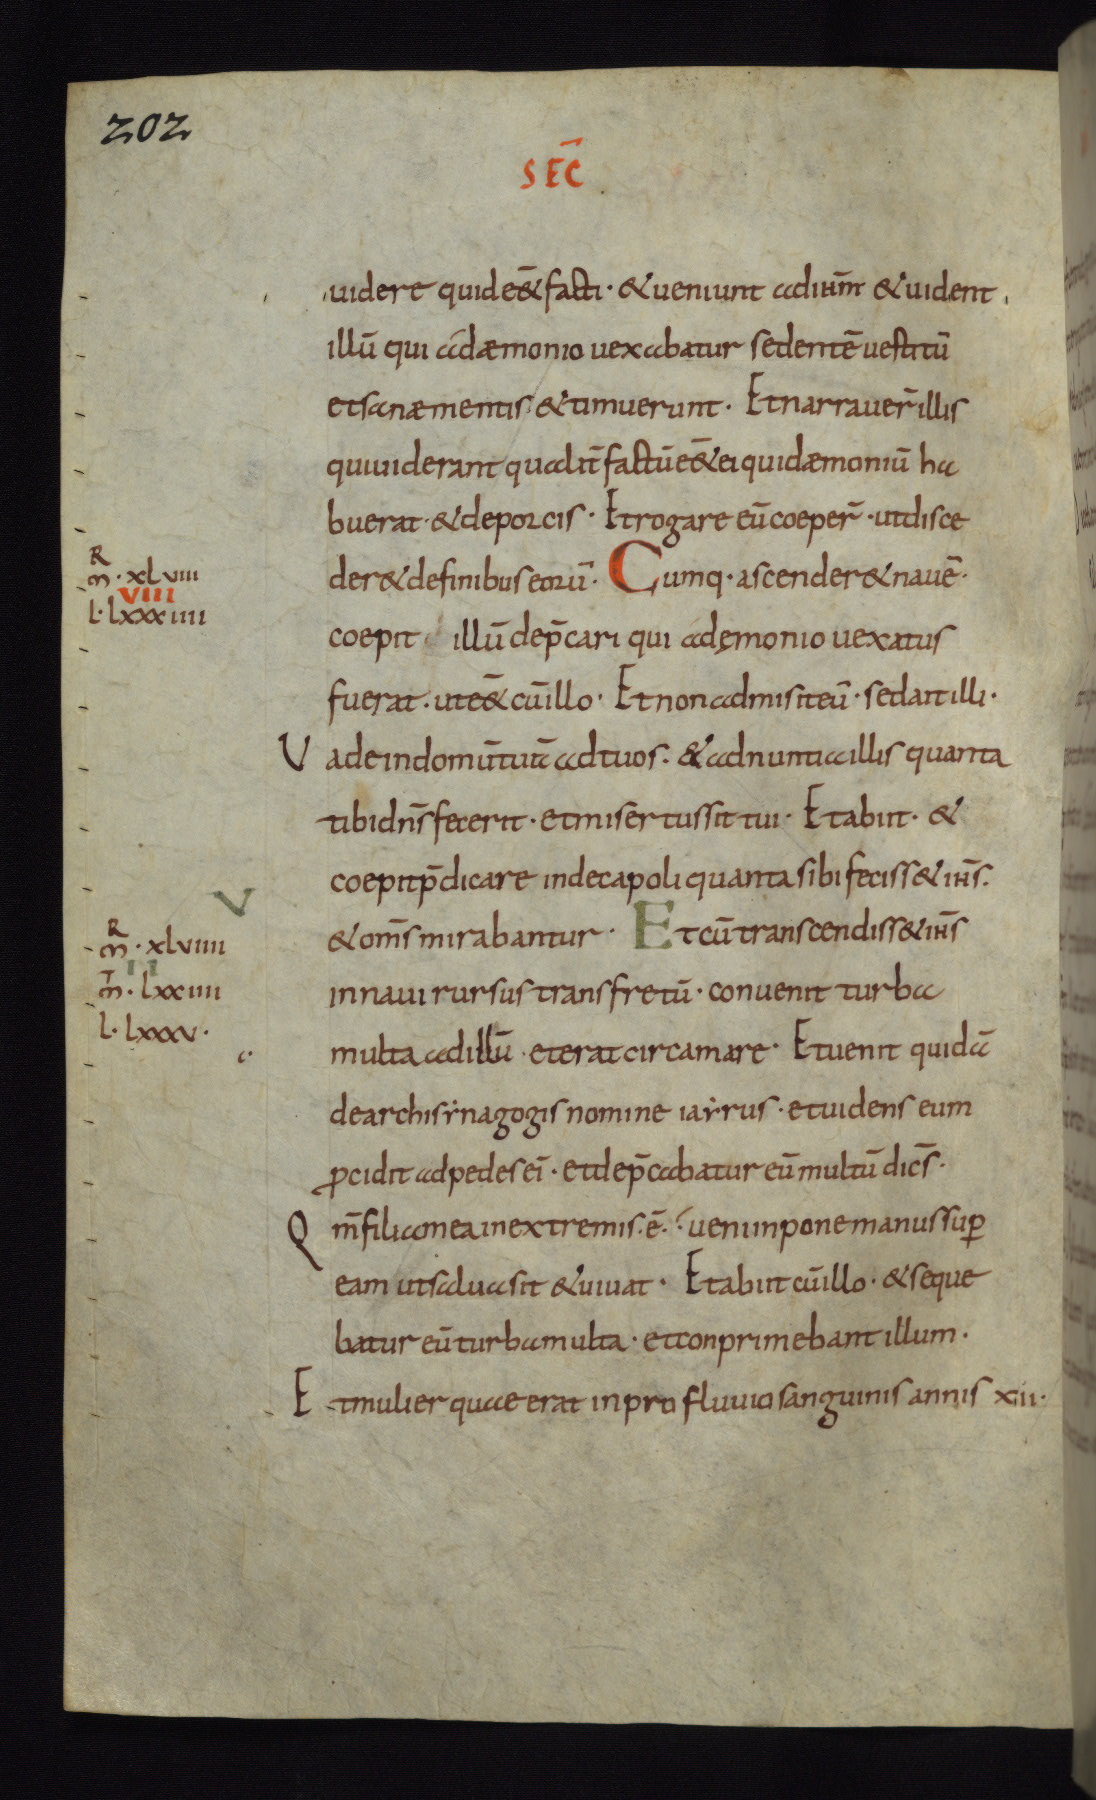 202
SEC̄
uidere quidē& facti · & ueniunt ad ihm̄ & uident
illū qui a dæmonio uexabatur sedentē uestitū
et sanæ mentis & timuerunt · Et narrauer̄ illis
qui uiderant qualit̄ factū ē& ei qui dæmoniū ha
buerat · & de porcis · Et rogare eū coeper̄ · ut disce
der& de finibus eorū · Cumq · ascender& nauē ·
coepit illū dep̄cari qui a dęmonio uexatus
fuerat · ut ē& cū illo · Et non admisit eū · sed ait illi ·
Vade in domū tuā ad tuos · & adnuntia illis quanta
tibi dn̄s fecerit · et misertus sit tui · Et abiit · &
coepit p̄dicare in decapoli quanta sibi feciss& ih̄s ·
& om̄s mirabantur · Et cū transcendiss& ih̄s
in naui rursus trans fretū · conuenit turba
multa ad illū · et erat circa mare · Et uenit quidā
de archisẏnagogis nomine iaẏrus · et uidens eum
ꝓcidit ad pedes eī · et dep̄cabatur eū multū dic̄s ·
Qm̄ filia mea in extremis · ē · ueni inpone manus suꝑ
eam ut salua sit & uiuat · Et abiit cū illo · & seque
batur eū turba multa · et conprimebant illum ·
Et mulier quae erat in profluuio sanguinis annis xii ·
R
m · xlviii
VIII
L · lxxxiiii
V
R
m · xlviiii
II
T
m · lxxiiii
L · lxxxv ·